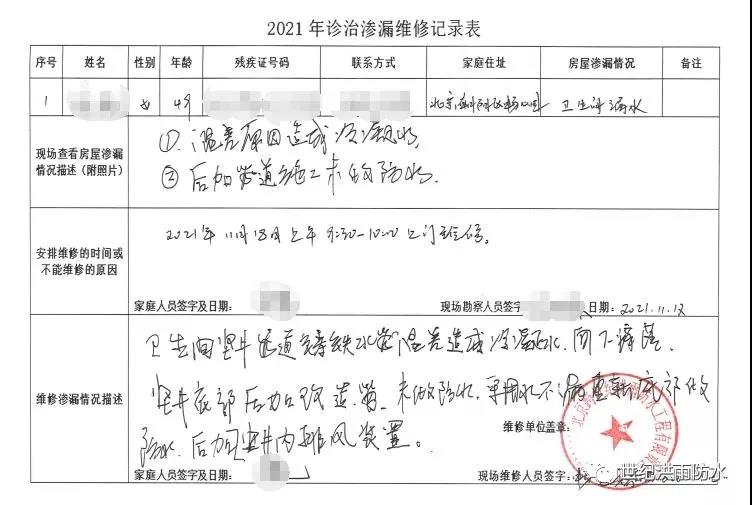 2021年诊治渗漏维修记录表
序号 姓名 性别 年龄 残疾证号码 联系方式 家庭住址 房屋渗漏情况 备注
1 女 49 北京 卫生间漏水
现场查看房屋渗漏
情况描述（附照片）
①.温差原因造成冷凝水
②后加管道施工未做防水.
安排维修的时间或
不能维修的原因
2021年11月18日上午9:30-10:00上门维修。
家庭人员签字及日期: 现场勘察人员签字 日期: 2021.11.17
维修渗漏情况描述
卫生间竖井管道铸铁水管温差造成冷凝水.向下滴落.
竖井底部后加改造管.未做防水.采用 底部做
防水.后加竖井内排风装置。
维修单位盖章:
家庭人员签字及日期: 现场维修人员签字:
防水工程有限
世纪洪雨防水